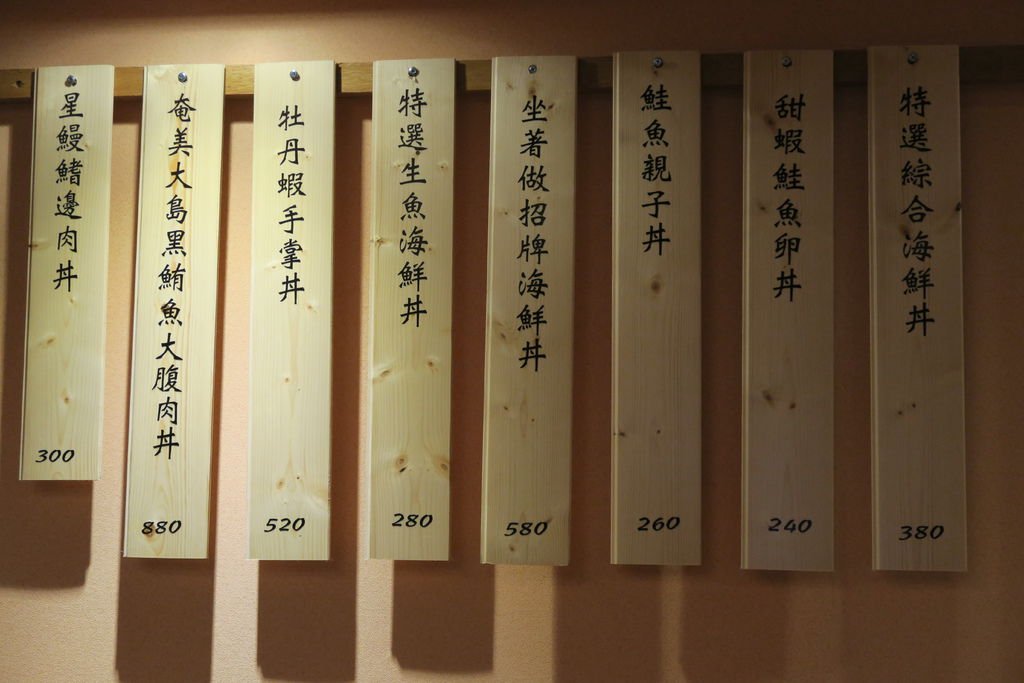 特選綜合海鮮丼
380
甜蝦鮭魚卵丼
240
鮭魚親子丼
260
坐著做招牌海鮮丼
580
特選生魚海鮮丼
280
牡丹蝦手掌丼
520
奄美大島黑鮪魚大腹肉丼
880
星鰻鰭邊肉丼
300